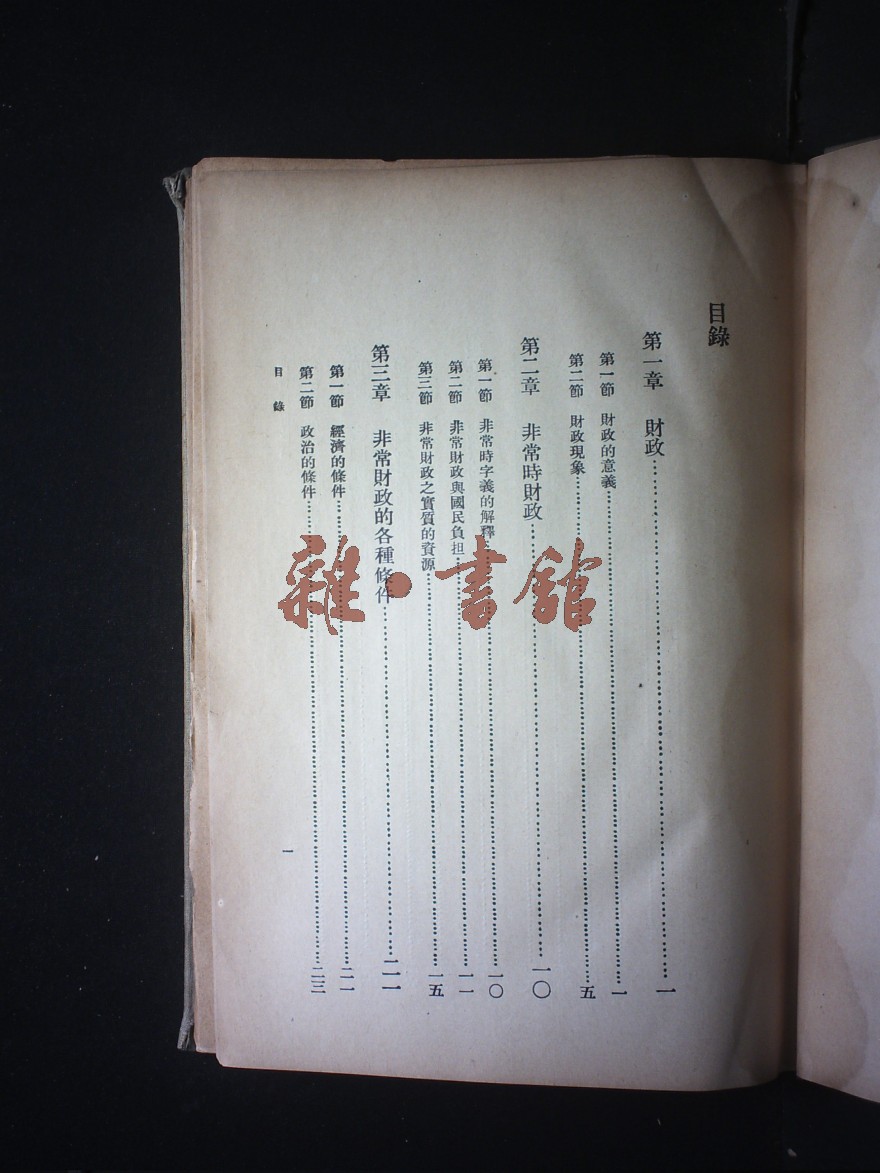 目錄
第一章 財政……一
第一節 財政的意義……一
第二節 財政現象……五
第二章 非常時財政……一〇
第一節 非常時字義的解釋……一〇
第二節 非常財政與國民負担……一一
第三節 非常財政之實質的資源……一五
第三章 非常財政的各種條件……二一
第一節 經濟的條件……二一
第二節 政治的條件……二三
目錄
一
雜·書館